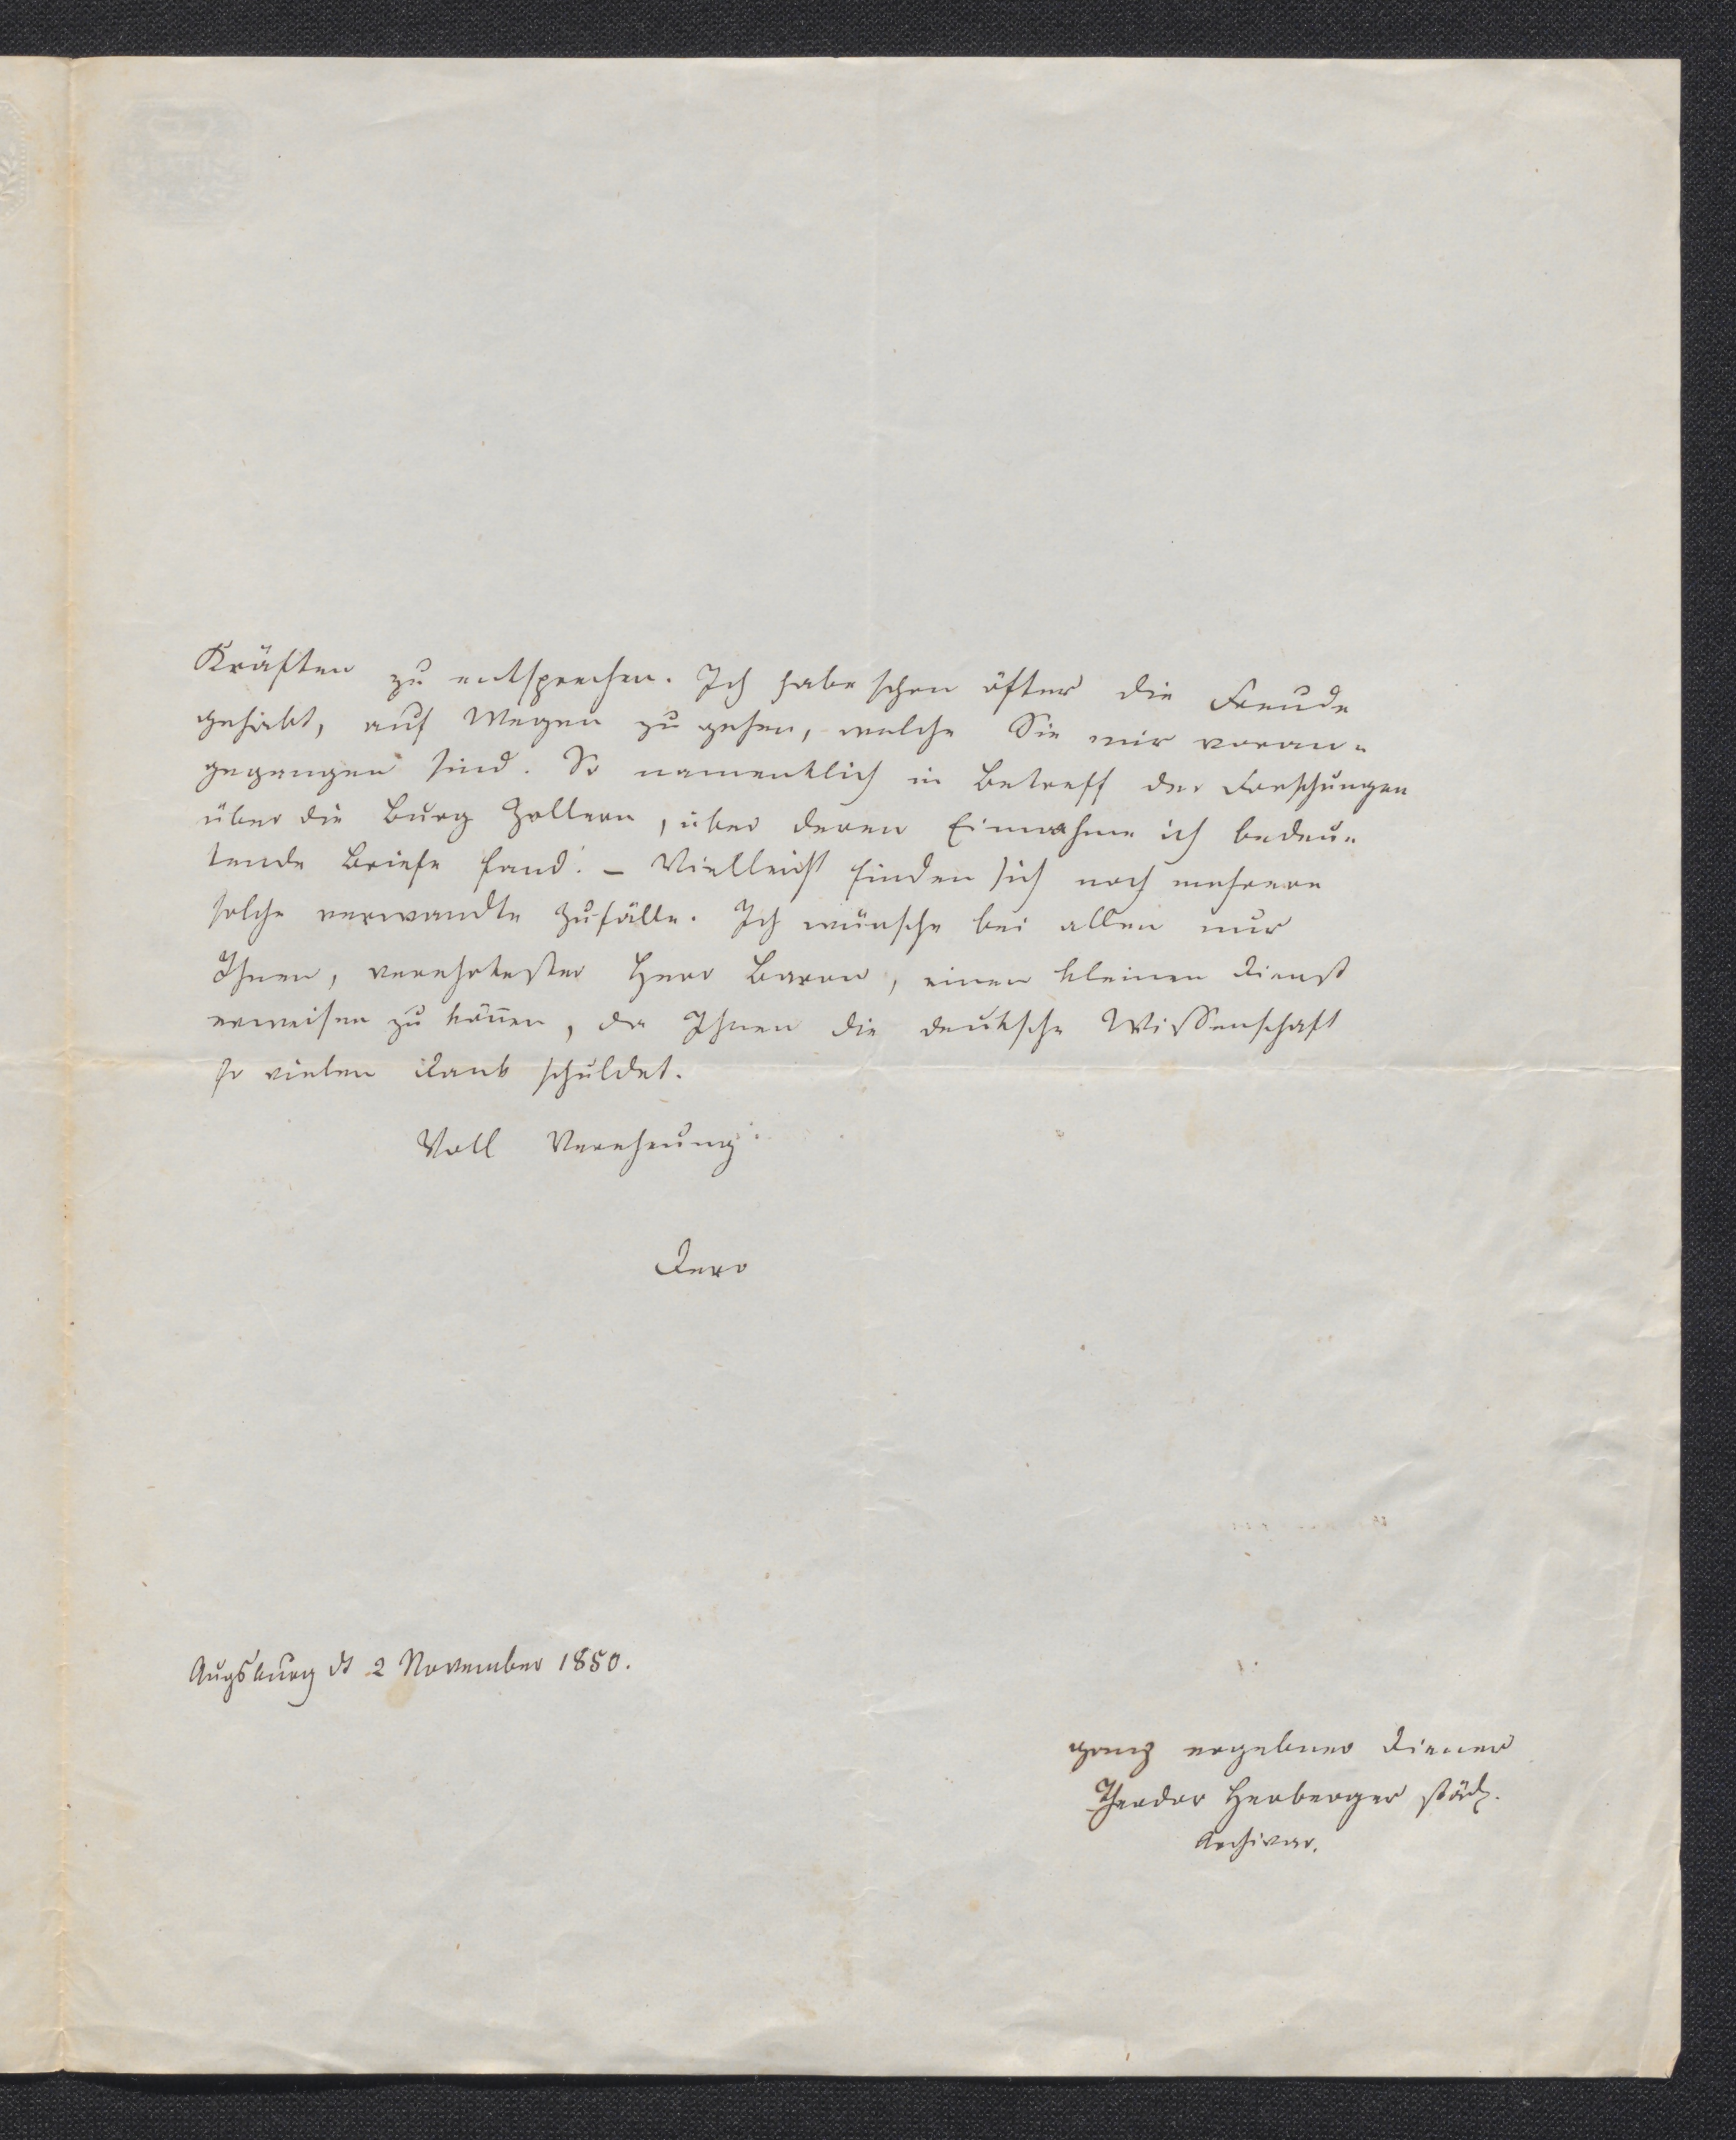 Kräften zu entsprechen. Ich habe schon öfter die Freude
gehabt, auf Wegen zu gehen, welche Sie mir voran-
gegangen sind. So namentlich in Betreff der Forschungen
über die Burg Zollern, über deren Einnahme ich bedeu-
tende Briefe fand. – Vielleicht finden sich noch mehrere
solche verwandte Zufälle. Ich wünsche bei allen nur
Ihnen, verehrtester Herr Baron, einen kleinen Dienst
erweisen zu kön̄en, da Ihnen die deutsche Wissenschaft
so vielen Dank schuldet.
Voll Verehrung
Dero
Augsburg d 2 November 1850.
ganz ergebner Diener
Theodor Herberger städt.
Archivar.